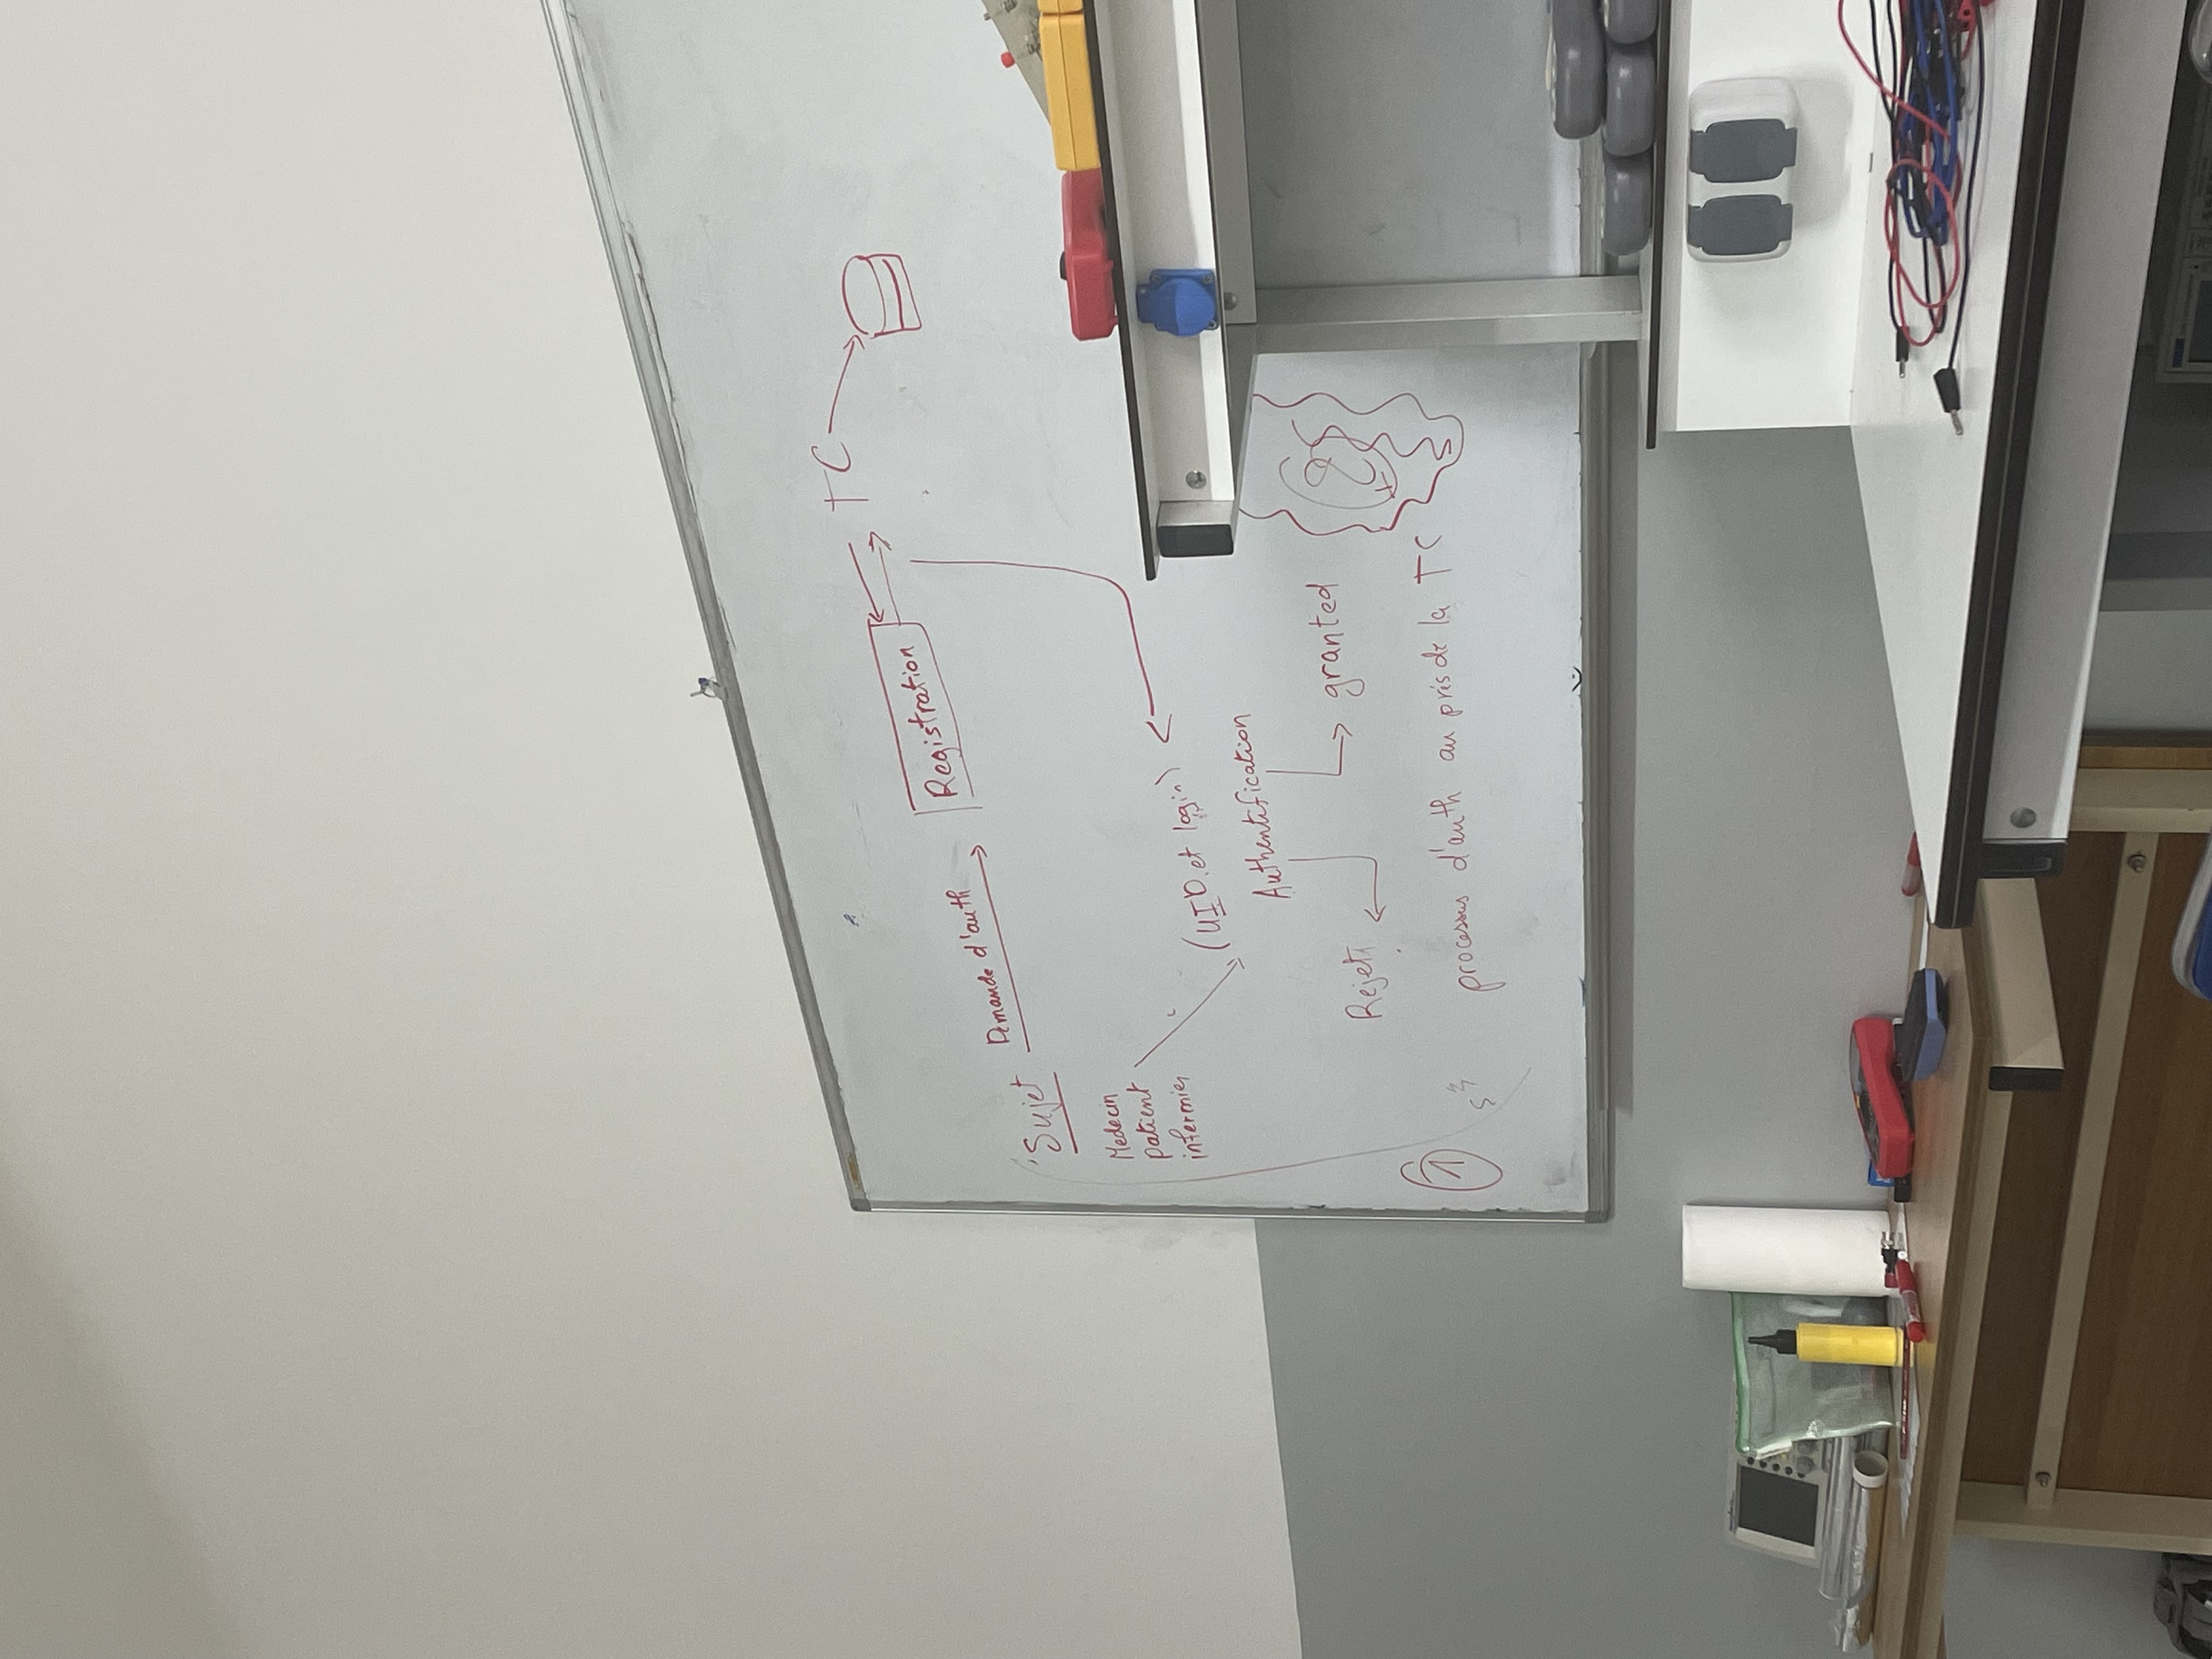 TC
Registration
Demande d'auth
Sujet
Medecin
patient
infermier
(UID et login)
Authentification
Rejet
granted
1
processus d'auth au près de la TC